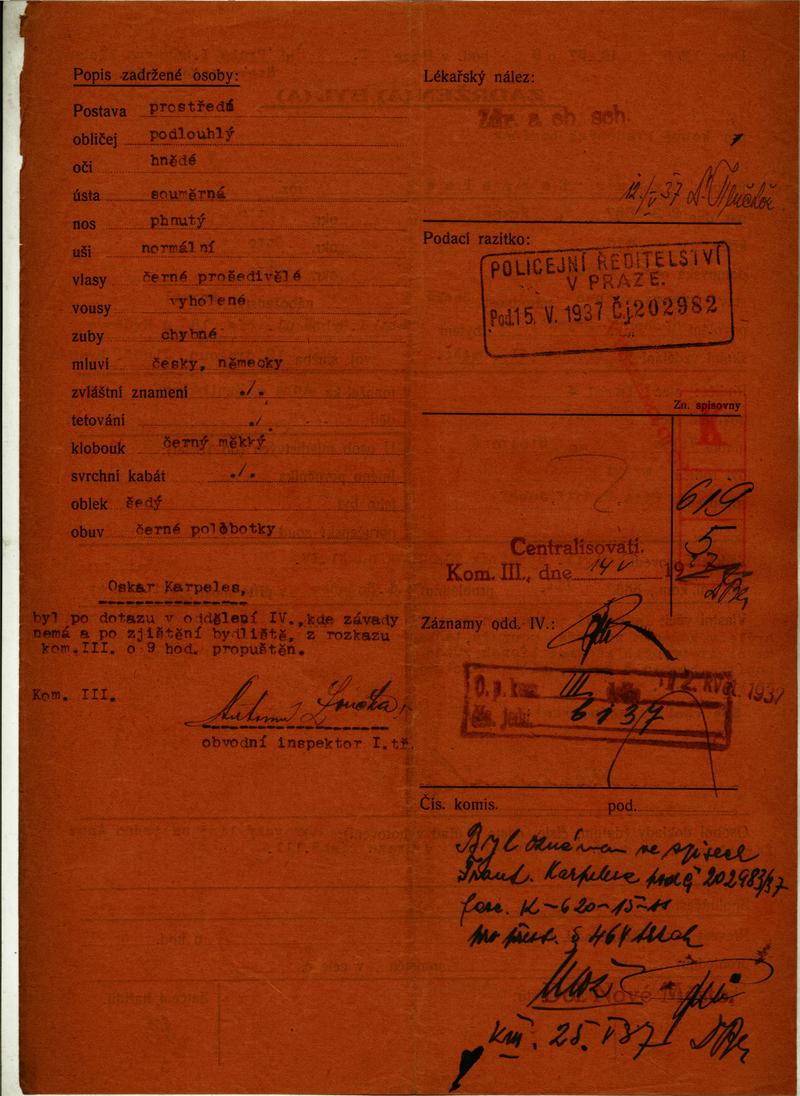 Popis zadržené osoby:
Postava prostředá
obličej podlouhlý
oči hnědé
ústa souměrná
nos phnutý
uši normální
vlasy černé prošedivělé
vousy vyholené
zuby chybné
mluví česky, německy
zvláštní znamení ./.
tetování ./.
klobouk černý měkký
svrchní kabát ./.
oblek šedý
obuv černé polobotky
Oskar Karpeles,
byl po dotazu v oddělení IV., kde závady
nemá a po zjištění bydliště, z rozkazu
kom.III. o 9 hod. propuštěn.
Kom. III.
Antonín Loučka
obvodní inspektor I.tř.
Lékařský nález:
Zdr. a sb. sch.
12/V 37 Dr.
Podací razítko:
POLICEJNÍ ŘEDITELSTVÍ
V PRAZE.
Pod. 15. V. 1937 Č.j. 202982
Zn. spisovny
K
619
5
Centralisovati.
Kom. III., dne 14 V 19
Záznamy odd. IV.:
O. p. kom. III 12. KVĚ. 1937
Čís. jedn. 6137
Čís. komis. pod.
Byl oznámen ve spisech
Frant. Karpelese 202983/37
fasc. K-620-15-
pro přest. § 461
Km. 25. V 37